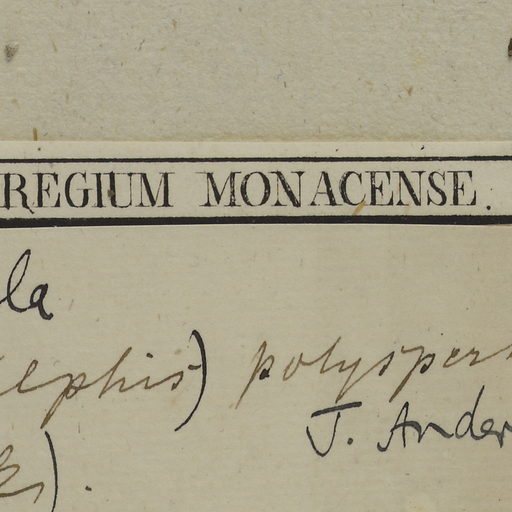 REGIUM MONACENSE.
la
elphis) polysper
J. Ander
).